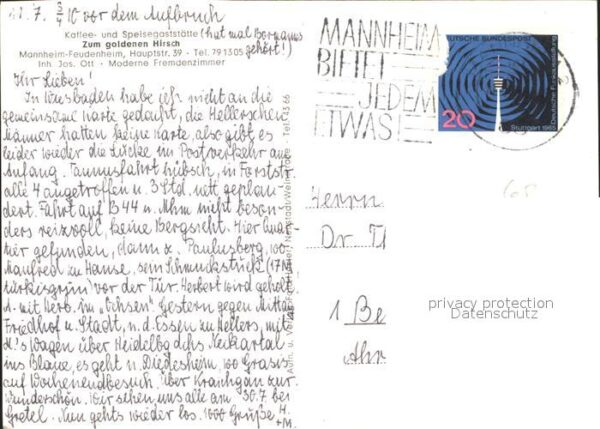 21.7. 3/4 10 vor dem Aufbruch
Kaffee- und Speisegaststätte (hat mal Bormanns
Zum goldenen Hirsch gehört!)
Mannheim-Feudenheim, Hauptstr. 39 - Tel. 791305
Inh. Jos. Ott · Moderne Fremdenzimmer
Ihr Lieben!
In Wiesbaden habe ich nicht an die
gemeinsame Karte gedacht, die Hellerschen
Männer hatten keine Karte, also gibt es
leider wieder die Lücke im Postverkehr am
Anfang. Taunusfahrt hübsch, in Forststr.
alle 4 angetroffen u 3 Std. nett geplau-
dert. Fahrt auf B 44 n. Mhm nicht beson-
ders reizvoll, keine Bergsicht. Hier
gefunden, dann z. Paulusberg, wo
Manfred zu Hause, sein Schmuckstück (17M
türkisgrün) vor der Tür. Herbert wird geholt,
mit Herb. im "Ochsen". Gestern gegen Mittag
Friedhof u Stadt, n. d. Essen zu Hellers, mit
H.'s Wagen über Heidelbg dchs Neckartal
ins Blaue, es geht n. Diedesheim, wo
auf Wochenendbesuch. Über Kraichgau zur.
Wunderschön. Wir sehen uns alle am 30.7. bei
Gretel. Nun gehts wieder los. 1000 Grüße H.
+M.
MANNHEIM
BIETET
JEDEM
ETWAS
DEUTSCHE BUNDESPOST
20
Deutsche Funkausstellung
Stuttgart 1965
Herrn
Dr. U
1 Be
Ahr
privacy protection
Datenschutz